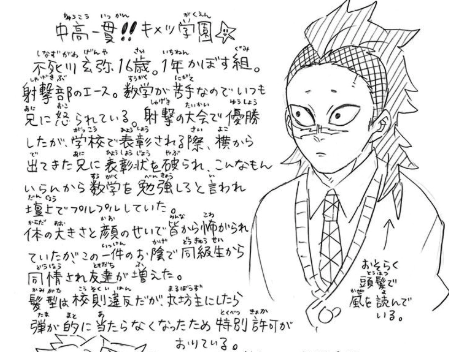 中高一貫!!キメツ学園☆
不死川玄弥16歳。1年かぼす組。
射撃部のエース。数学が苦手なのでいつも
兄に怒られている。射撃の大会で優勝
したが、学校で表彰される際、横から
出てきた兄に表彰状を破られ、こんなもん
いらんから数学を勉強しろと言われ
壇上でプルプルしていた。
体の大きさと顔のせいで皆から怖がられ
ていたがこの一件のお陰で同級生から
同情され友達が増えた。
髪型は校則違反だが、丸坊主にしたら
弾が的に当たらなくなったため特別許可が
おりている。
おそらく
頭髪で
風を読んで
いる。